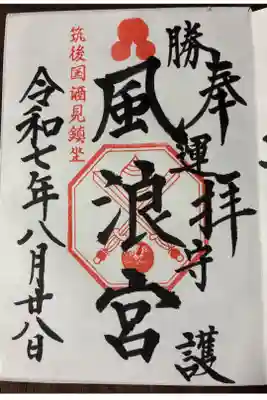 奉拝
勝運守護
風浪宮
筑後国酒見鎮坐
令和七年八月廿八日